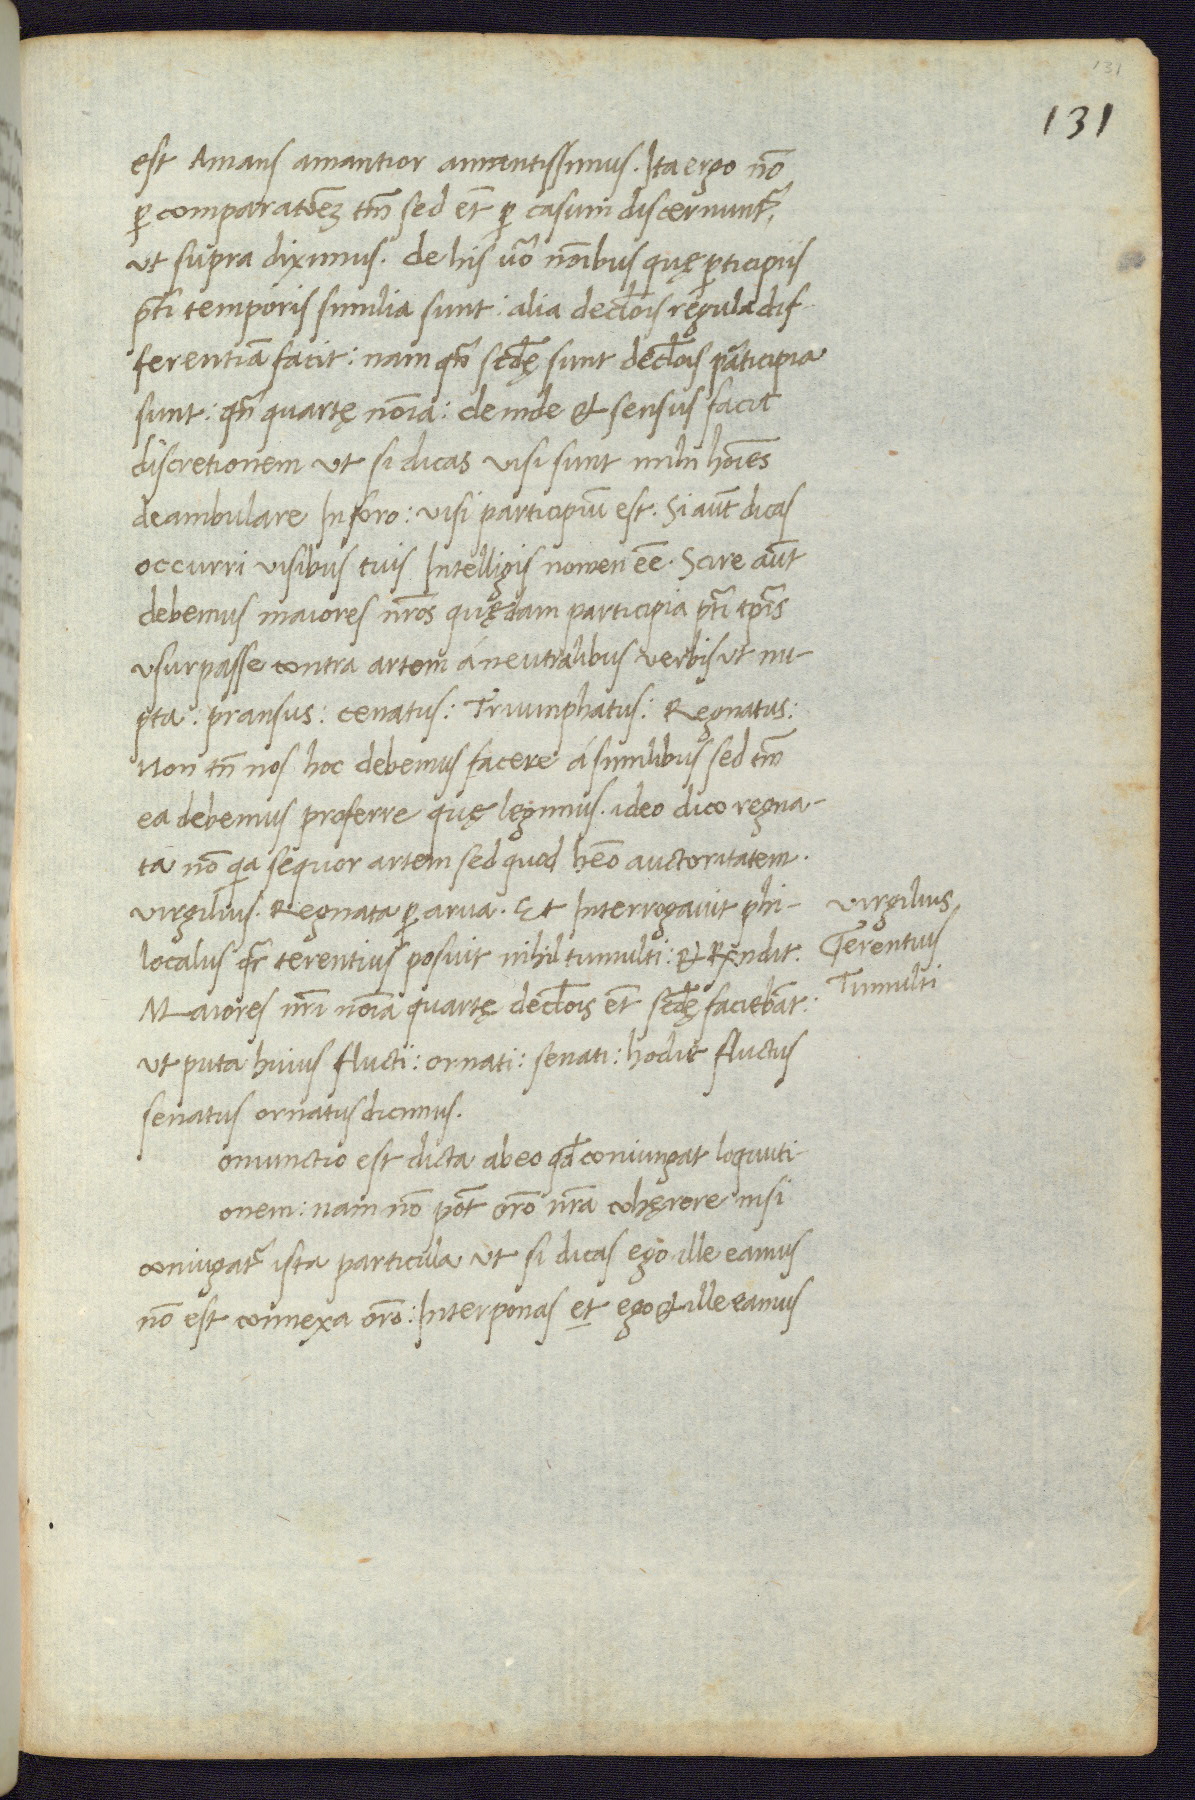 131
131
est Amans amantior amantissimus. Ita ergo nõ
ꝑ comparatõeʒ tm̃ sed et̃ ꝑ casum discernunt᷑
ut supra diximus. de his ũo noĩbus quę ꝑticipiis
p̃ti temporis similia sunt: alia decl̃ois regula dif-
ferentiã facit: nam qñ scd̃ę sunt decl̃ois participia
sunt: qñ quartę noĩa: deinde & sensus facit
discretionem ut si dicas visi sunt mihi hoĩes
deambulare In foro: visi participiũ est. Si aũt dicas
occurri visibus tuis Intelligis nomen eẽ. Scire aũt
debemus maiores nr̃os quędam participia p̃ti tp̃is
usurpasse contra artem á neutralibus verbis ut nu-
pta: pransus: cenatus: Triumphatus: Regnatus:
Non tñ nos hoc debemus facere á similibus sed tm̃
ea debemus proferre quę legimus. ideo dico regna-
ta nõ qa sequor artem sed quod heõ auctoritatem.
virgilius. Regnata ꝑ arva. Et Interrogavit phi-
localus qr̃ terentius posuit nihil tumulti: & Rñdit.
Maiores nr̃i noĩa quartę decl̃ois et̃ scd̃ę faciebãt.
ut puta huius flucti: ornati: senati: hodie fluctus
senatus ornatus dicimus.
oniunctio est dicta ab eo qd̃ coniungat loquuti-
onem: nam nõ põt or̃o nr̃a cohęrere nisi
coniũgat᷑ ista particula ut si dicas ego ille eamus
nõ est connexa or̃o: Interponas et ego & ille eamus
virgilius
Terentius
Tumulti